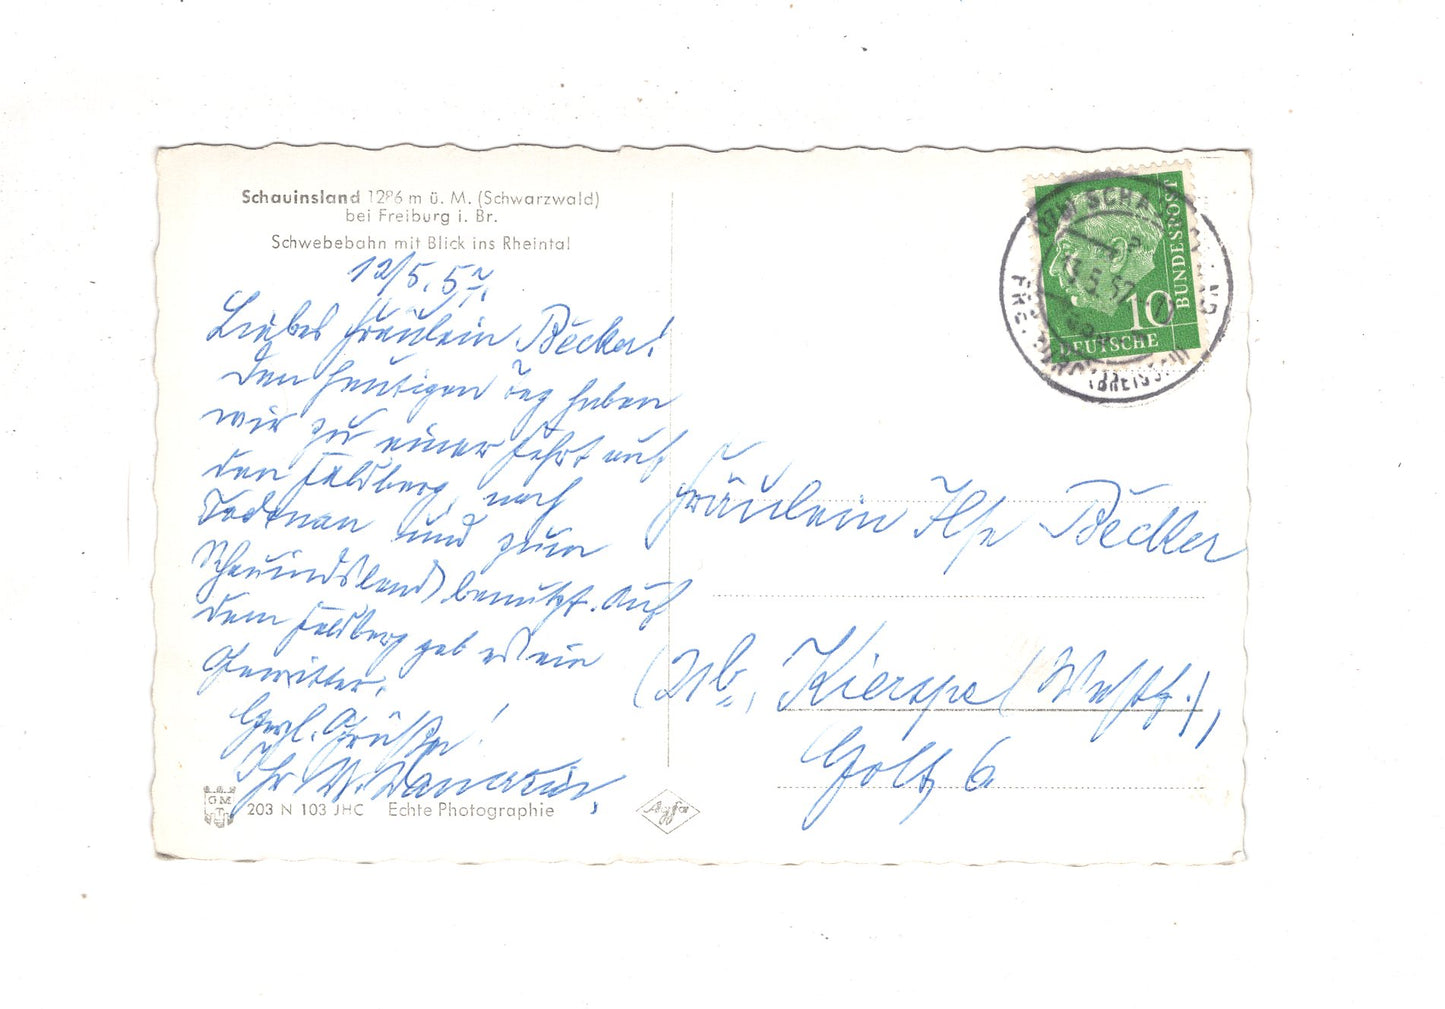 Schauinsland 1286 m ü. M. (Schwarzwald)
bei Freiburg i. Br.
Schwebebahn mit Blick ins Rheintal
12/5.57.
Liebes Fräulein Becker!
Den heutigen Tag haben
wir zu einer Fahrt auf
den Feldberg, nach
Todtnau und zum
Schauindsland benutzt. Auf
dem Feldberg gab es ein
Gewitter.
Herzl. Grüße!
Ihr W.
203 N 103 JHC Echte Photographie
Agfa
GM
T
DEUTSCHE
BUNDESPOST
10
13.5.57
Fräulein Ilse Becker
(21b, Kierspe (Westf.),
6